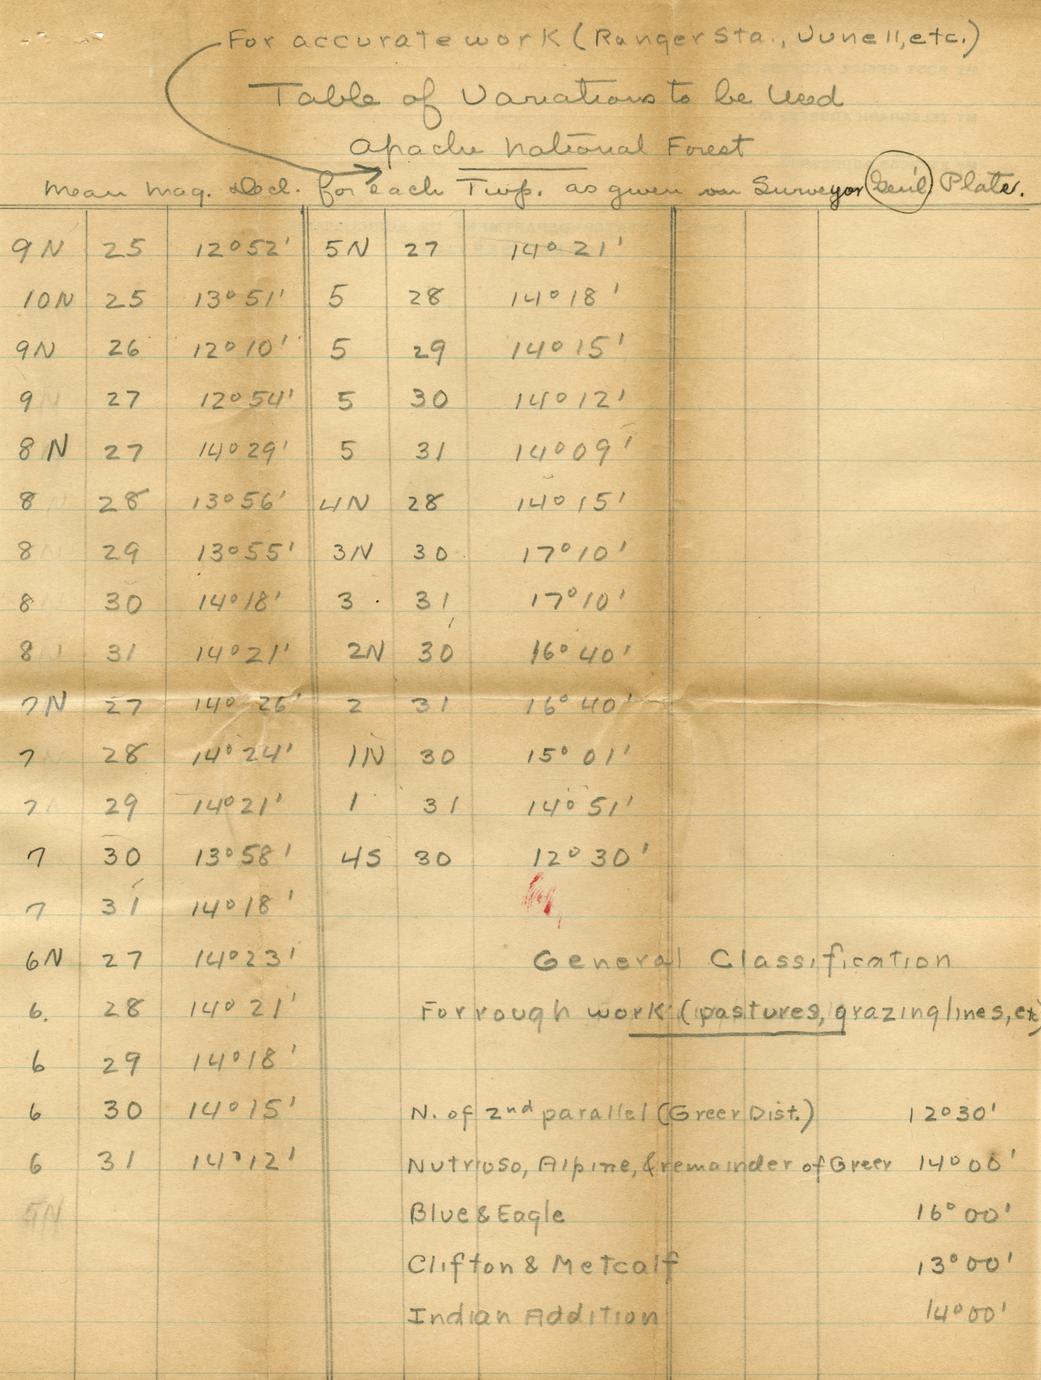 For accurate work (Ranger Sta., June 11, etc.)
Table of Variations to be Used
Apache National Forest
Mean Mag. Decl. for each Twp. as given on Surveyor Gen'l Plats.
9N 25 12°52' 5N 27 14°21'
10N 25 13°51' 5 28 14°18'
9N 26 12°10' 5 29 14°15'
9 27 12°54' 5 30 14°12'
8N 27 14°29' 5 31 14°09'
8 28 13°56' 4N 28 14°15'
8 29 13°55' 3N 30 17°10'
8 30 14°18' 3 31 17°10'
8 31 14°21' 2N 30 16°40'
7N 27 14°26' 2 31 16°40'
7 28 14°24' 1N 30 15°01'
7 29 14°21' 1 31 14°51'
7 30 13°58' 4S 30 12°30'
7 31 14°18'
6N 27 14°23' General Classification
6. 28 14°21' For rough work (pastures, grazing lines, etc
6 29 14°18'
6 30 14°15' N. of 2nd parallel (Greer Dist.) 12°30'
6 31 14°12' Nutrioso, Alpine, & remainder of Greer 14°00'
5N Blue & Eagle 16°00'
Clifton & Metcalf 13°00'
Indian Addition 14°00'